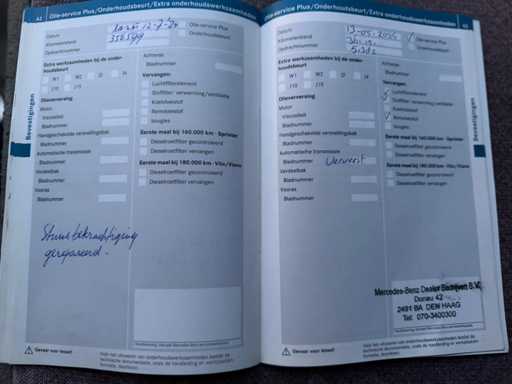 42 Olie-service Plus/Onderhoudsbeurt/Extra onderhoudswerkzaamheden
Datum
Kilometerstand
Opdrachtnummer
Olie-service Plus
Onderhoudsbeurt
Extra werkzaamheden bij de onder-
houdsbeurt
W1 W2
Olieverversing
Motor
Viscositeit
Bladnummer
Handgeschakelde versnellingsbak
Bladnummer
Automatische transmissie
Bladnummer
Verdeelbak
Bladnummer
Vooras
Bladnummer
Achteras
Bladnummer
Vervangen:
Luchtfilterelement
Stoffilter verwarming/ventilatie
Koelvloeistof
Remvloeistof
Bougies
Eerste maal bij 160.000 km - Sprinter
Dieselroetfilter gecontroleerd
Dieselroetfilter vervangen
Eerste maal bij 180.000 km - Vito/Viano
Dieselroetfilter gecontroleerd
Dieselroetfilter vervangen
Stuurbekrachtiging
gerepareerd.
Bevestigingen
Gevaar voor letsel!
Olie-service Plus/Onderhoudsbeurt/Extra onderhoudswerkzaamheden 43
Datum
Kilometerstand
Opdrachtnummer
Extra werkzaamheden bij de onder-
houdsbeurt
W1 W2
Olieverversing
Motor
Viscositeit
Bladnummer
Handgeschakelde versnellingsbak
Bladnummer
Automatische transmissie
Bladnummer Ververst
Verdeelbak
Bladnummer
Vooras
Bladnummer
Achteras
Bladnummer
Vervangen:
Luchtfilterelement
Stoffilter verwarming/ventilatie
Koelvloeistof
Remvloeistof
Bougies
Eerste maal bij 160.000 km - Sprinter
Dieselroetfilter gecontroleerd
Dieselroetfilter vervangen
Eerste maal bij 180.000 km - Vito/Viano
Dieselroetfilter gecontroleerd
Dieselroetfilter vervangen
Mercedes-Benz Dealer Bedrijven B.V.
Donau 42
2491 BA DEN HAAG
Tel: 070-3400300
Bevestigingen
Gevaar voor letsel!